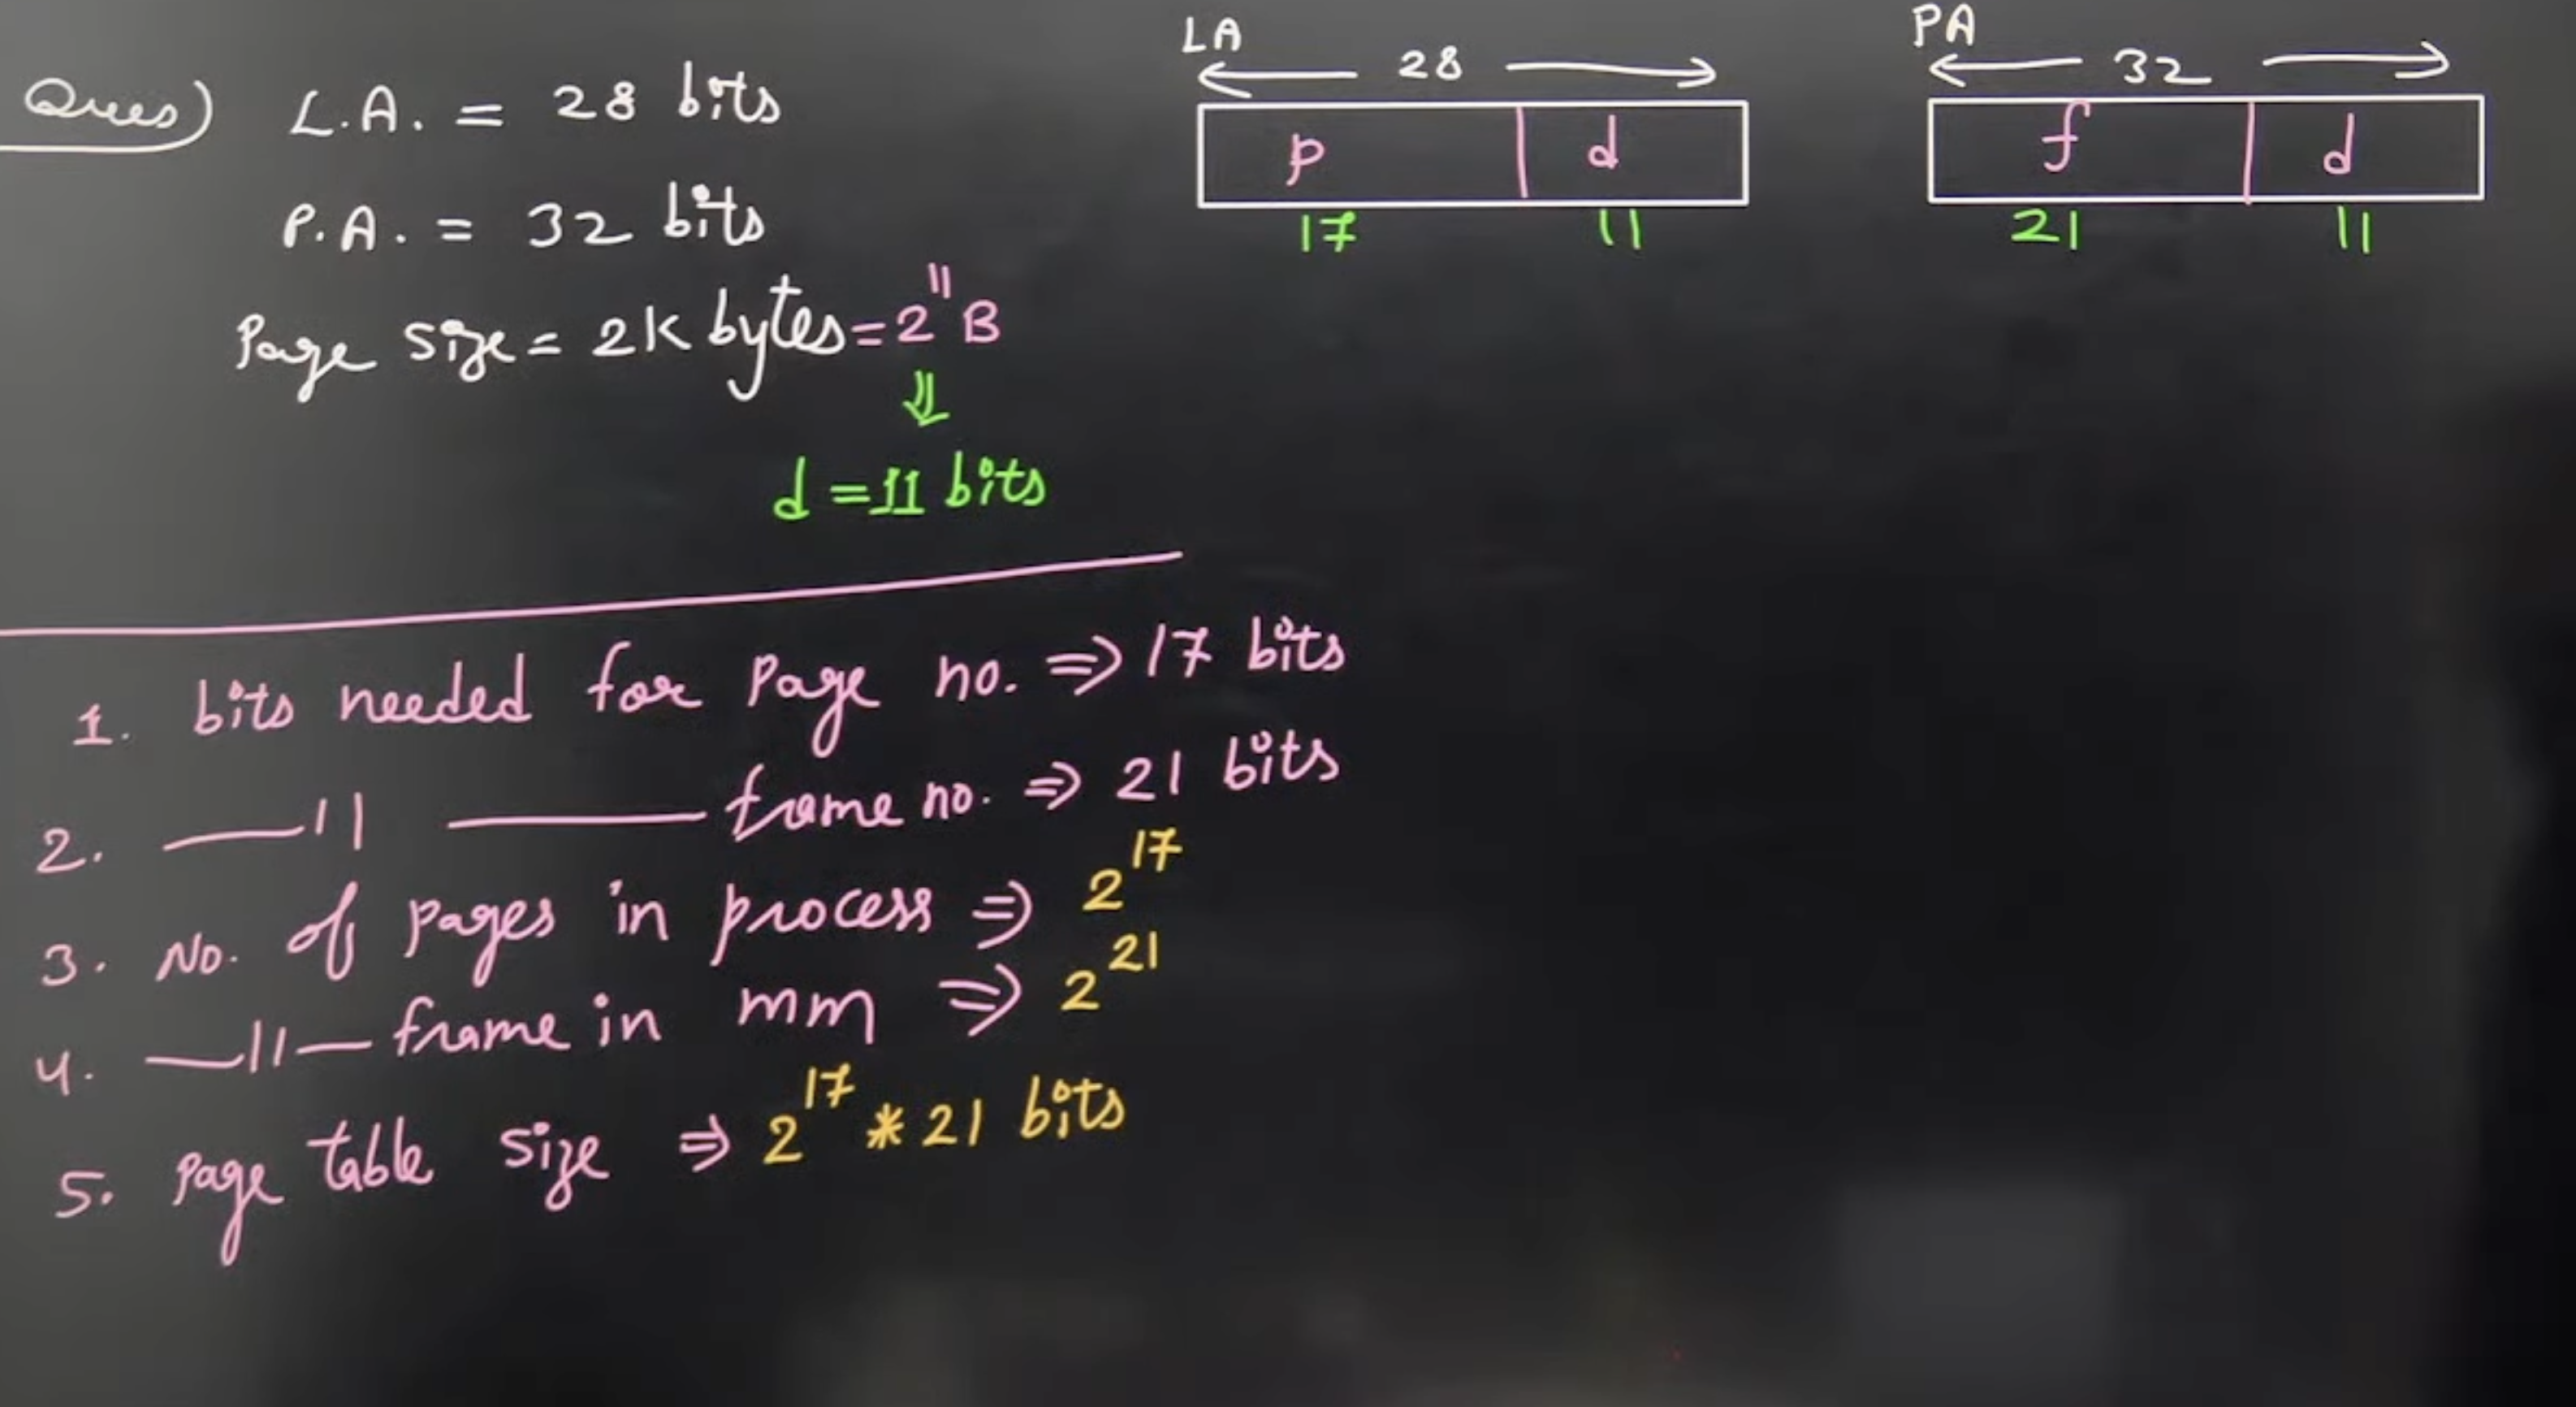 Ques) L.A. = 28 bits
P.A. = 32 bits
Page size = 2K bytes = 2¹¹ B
⇓
d = 11 bits
LA
28
p d
17 11
PA
32
f d
21 11
1. bits needed for Page no. ⇒ 17 bits
2. —11— frame no. ⇒ 21 bits
3. No. of pages in process ⇒ 2¹⁷
4. —11— frame in mm ⇒ 2²¹
5. Page table size ⇒ 2¹⁷ * 21 bits